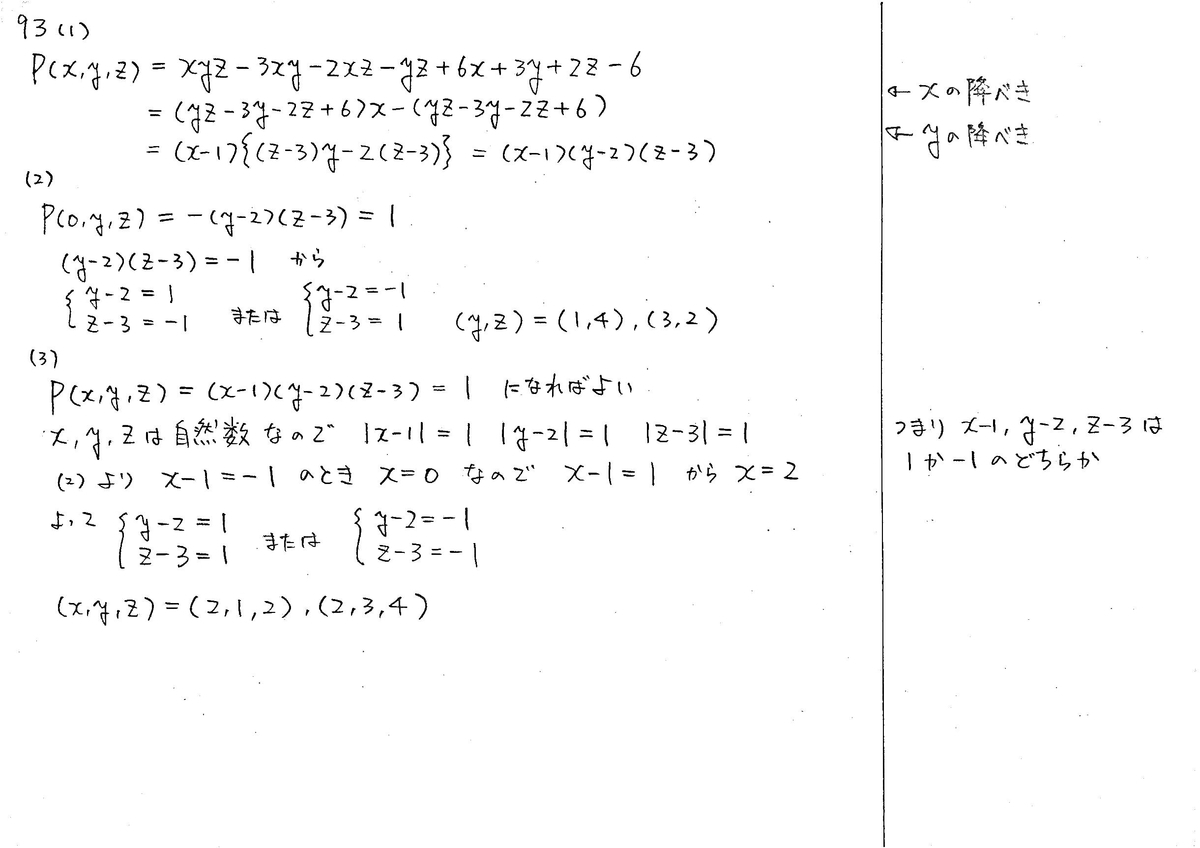 93 (1)
P(x,y,z) = xyz-3xy-2xz-yz+6x+3y+2z-6
= (yz-3y-2z+6)x-(yz-3y-2z+6)
← xの降べき
= (x-1){(z-3)y-2(z-3)} = (x-1)(y-2)(z-3)
← yの降べき
(2)
P(0,y,z) = -(y-2)(z-3) = 1
(y-2)(z-3) = -1 から
{y-2=1 z-3=-1 または {y-2=-1 z-3=1 (y,z)=(1,4),(3,2)
(3)
P(x,y,z) = (x-1)(y-2)(z-3) = 1 になればよい
x,y,zは自然数なので |x-1|=1 |y-2|=1 |z-3|=1
(2)より x-1=-1 のとき x=0 なので x-1=1 から x=2
つまり x-1, y-2, z-3は
1か-1のどちらか
よって {y-2=1 z-3=1 または {y-2=-1 z-3=-1
(x,y,z)=(2,1,2),(2,3,4)